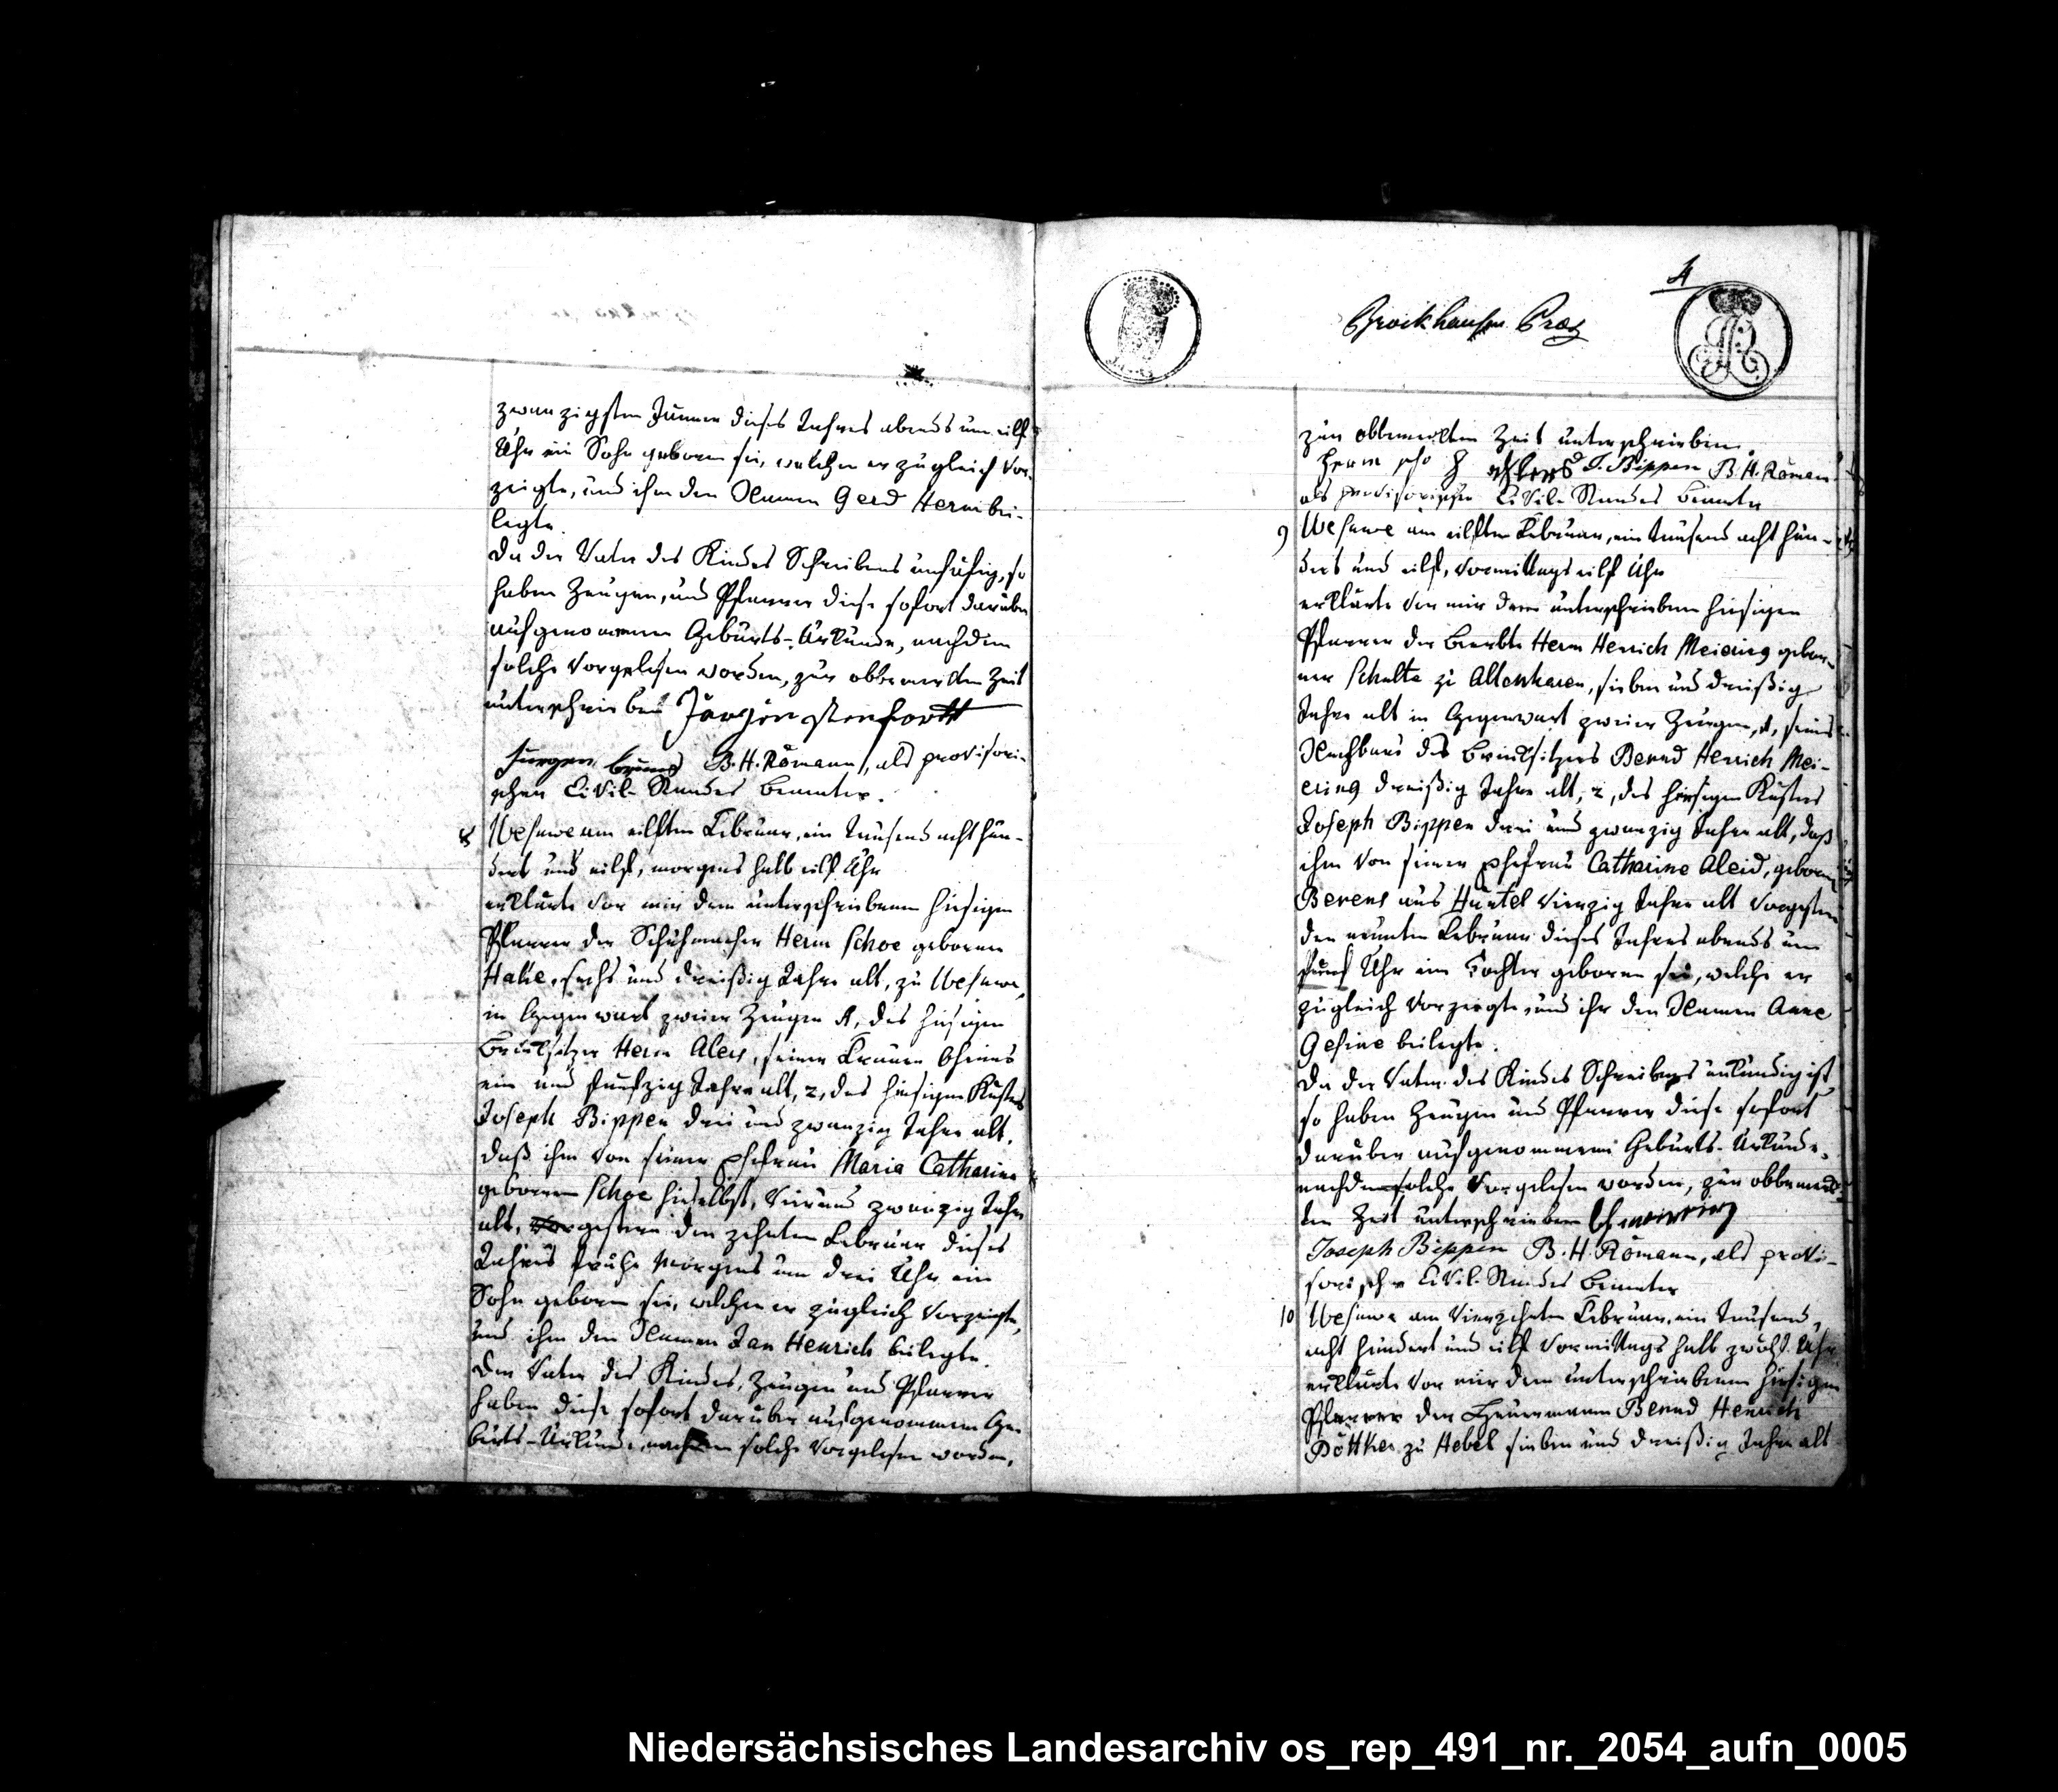 zwanzigsten Januar dieses Jahres abends um eilf
Uhr ein Sohn geboren sei, welchen er zugleich vor-
zeigte, und ihm den Namen Gerd Herm bei-
legte.
Da der Vater des Kindes Schreibens unfähig, so
haben Zeugen, und Pfarrer diese sofort darüber
aufgenommene Geburts-Urkunde, nachdem
solche vorgelesen worden, zur obbemerkten Zeit
unterschrieben
B. H. Römann, als provisori-
scher Civil-Standes Beamter.
8 Wesuwe am eilften Februar, ein tausend acht hun-
dert und eilf, morgens halb eilf Uhr
erklärte vor mir dem unterschriebenen hiesigen
Pfarrer der Schuhmacher Herm Schoe geboren
Hake, sechs und dreißig Jahre alt, zu Wesuwe,
in Gegenwart zweier Zeugen 1, des hiesigen
Brinksitzer Herm Alers, seiner Frauen Oheims
ein und fünfzig Jahre alt, 2, des hiesigen Küsters
Joseph Bippen drei und zwanzig Jahre alt,
daß ihm von seiner Ehefrau Maria Catharina
geboren Schoe hieselbst, vier und zwanzig Jahre
alt, gestern den zehnten Februar dieses
Jahres frühe Morgens um drei Uhr ein
Sohn geboren sei, welchen er zugleich vorzeigte,
und ihm den Namen Jan Henrich beilegte.
Der Vater des Kindes, Zeugen und Pfarrer
haben diese sofort darüber aufgenommene Ge-
burts-Urkunde, nachdem solche vorgelesen worden,
4
zur obbemerkten Zeit unterschrieben.
Herm J. Bippen B. H. Römann
als provisorischer Civil-Standes Beamter
9 Wesuwe am eilften Februar, ein tausend acht hun-
dert und eilf, vormittags eilf Uhr
erklärte vor mir dem unterschriebenen hiesigen
Pfarrer der Beerbte Herm Henrich Meiering gebor-
ner Schulte zu Altenharen, sieben und dreißig
Jahre alt in Gegenwart zweier Zeugen, 1, seines
Nachbars des Brinksitzers Bernd Henrich Mei-
ering dreißig Jahre alt, 2, des hiesigen Küsters
Joseph Bippen drei und zwanzig Jahre alt, daß
ihm von seiner Ehefrau Catharine Aleid, geboren
Berens aus Huntel vierzig Jahre alt vorgestern
den neunten Februar dieses Jahres abends um
fünf Uhr eine Tochter geboren sei, welche er
zugleich vorzeigte, und ihr den Namen Anne
Gesine beilegte.
Da der Vater des Kindes Schreibens unkundig ist,
so haben Zeugen und Pfarrer diese sofort
darüber aufgenommene Geburts-Urkunde,
nachdem solche vorgelesen worden, zur obbemerk-
ten Zeit unterschrieben
Joseph Bippen B. H. Römann, als provi-
sorischer Civil-Standes Beamter
10 Wesuwe am vierzehnten Februar, ein tausend,
acht hundert und eilf vormittags halb zwölf Uhr
erklärte vor mir dem unterschriebenen hiesigen
Pfarrer der Heuermann Bernd Henrich
Döttker zu Hebel sieben und dreißig Jahre alt
Niedersächsisches Landesarchiv os_rep_491_nr._2054_aufn_0005